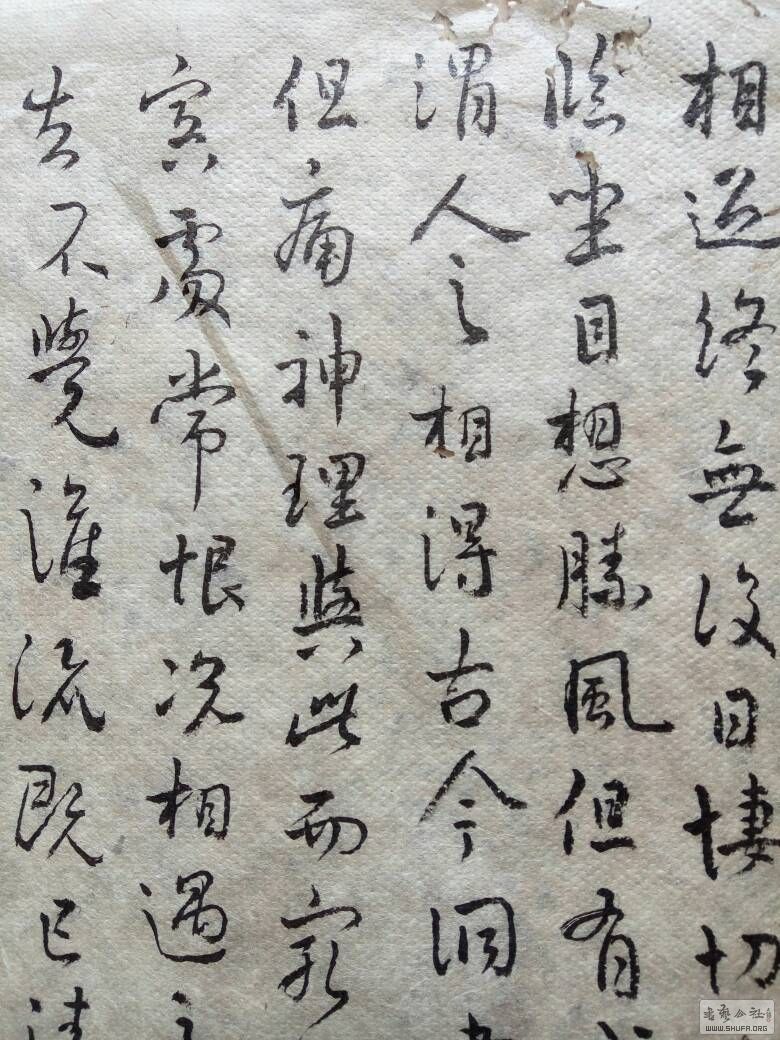 相過終無復日悽切
臨坐目想勝風但有
謂人之相得古今洞
但痛神理與此而窮
冥處常恨况相遇之
不覺流既已
書藝公社
WWW.SHUFA.ORG